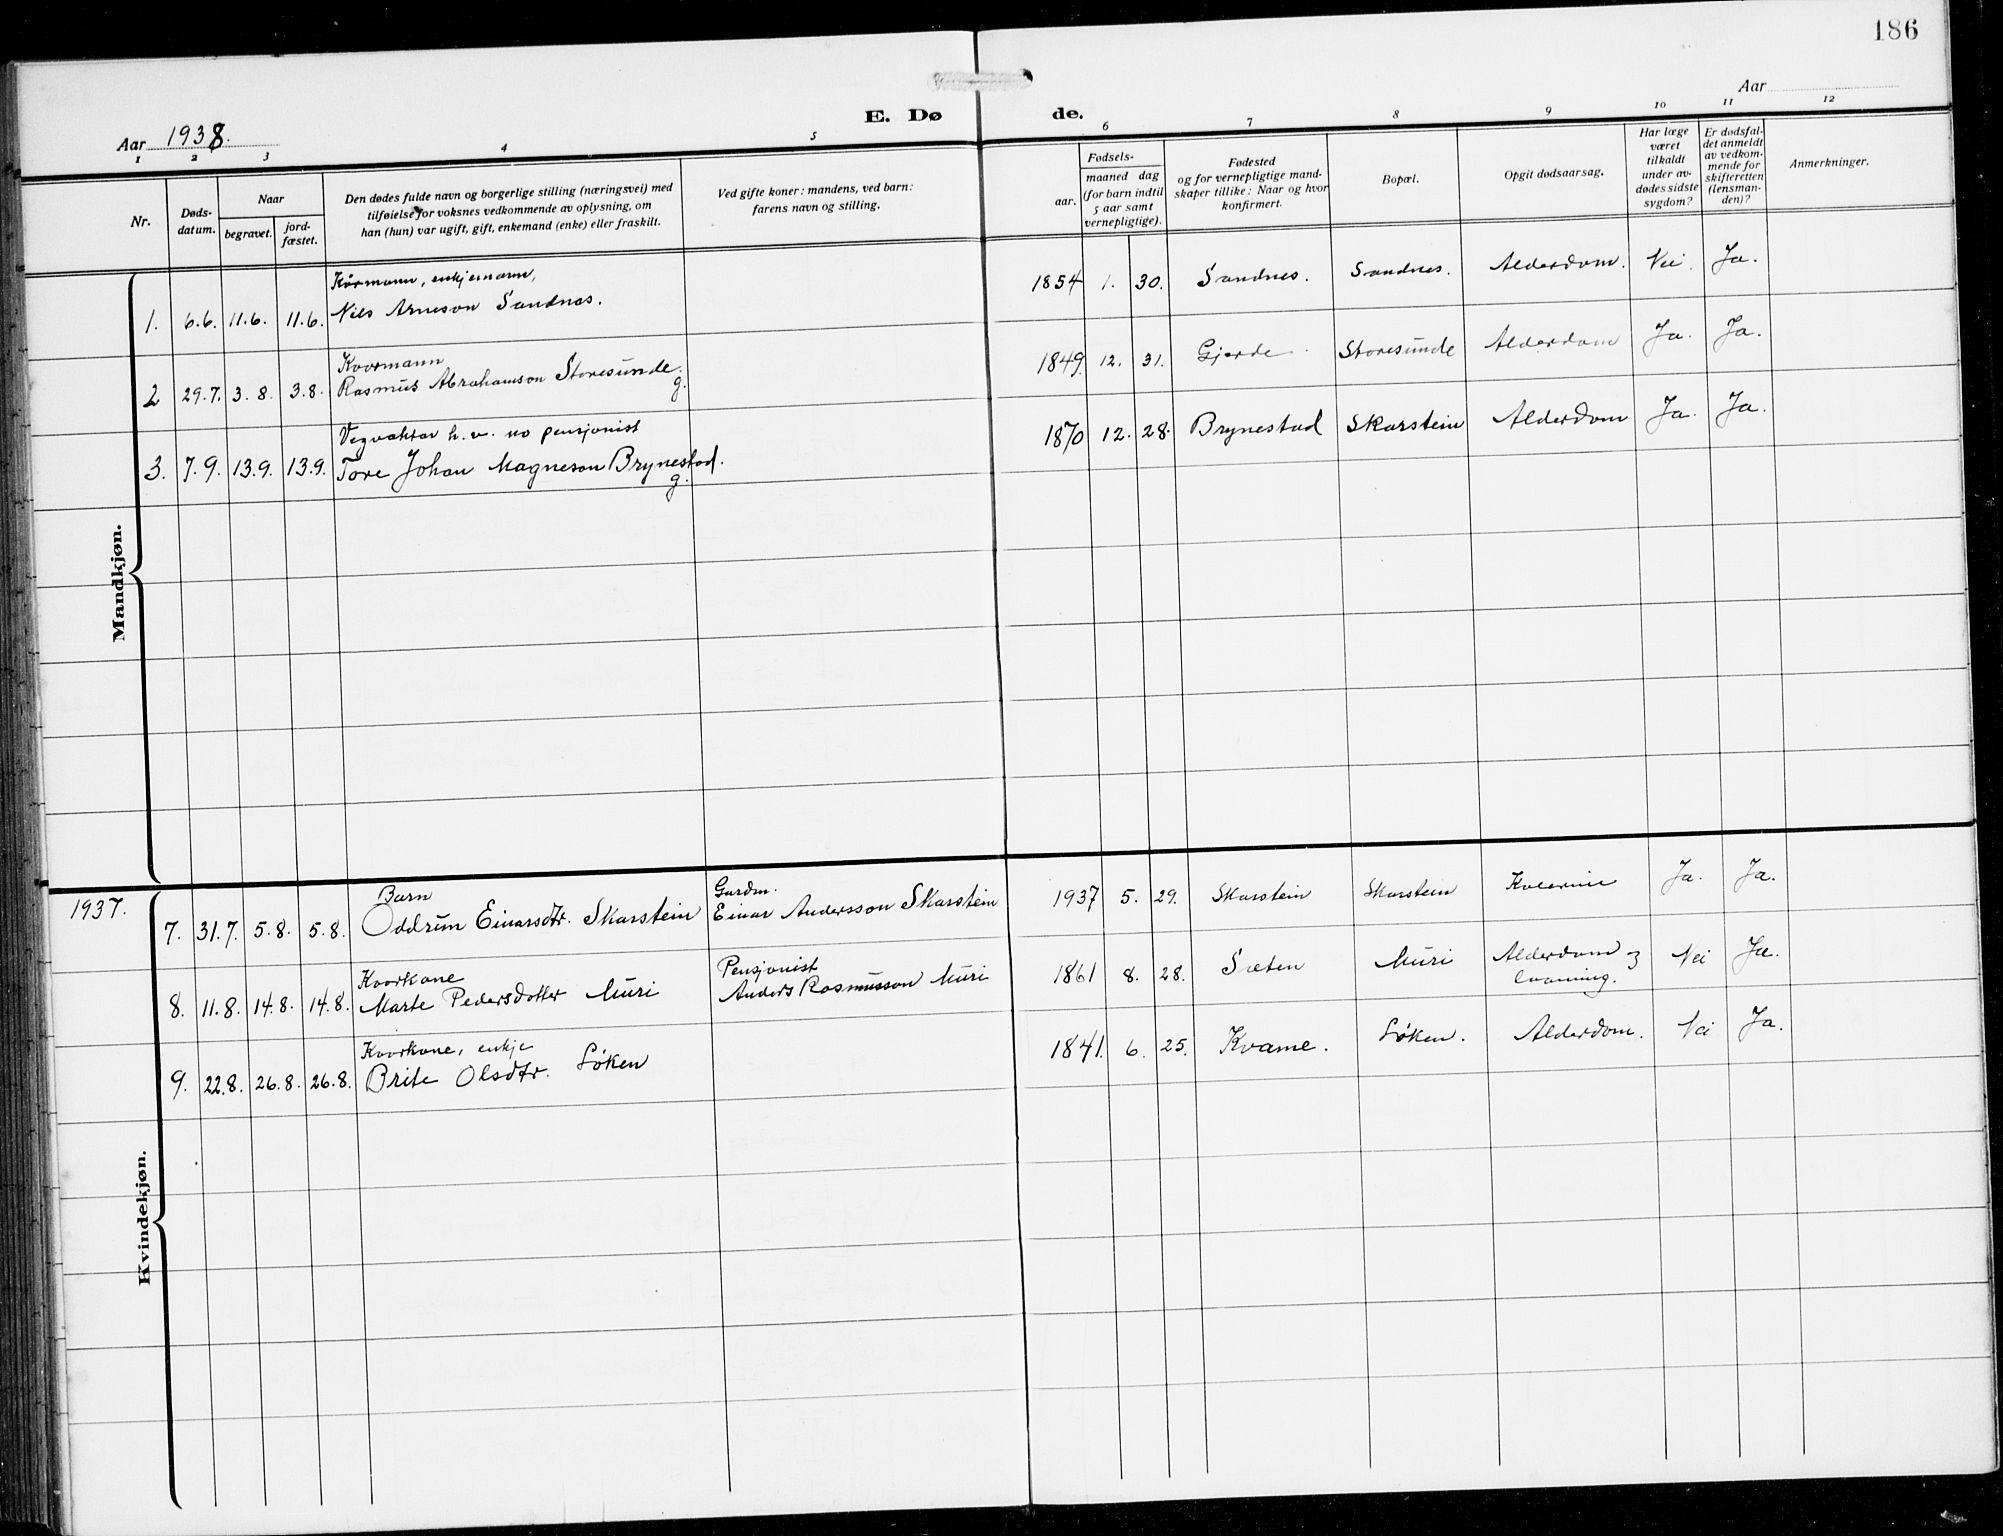 186
E. Dø de.
Aar 1938.
Aar
1 2 3 4 5 6 7 8 9 10 11 12
Nr.
Døds-
datum.
Naar
begravet.
jord-
fæstet.
Den dødes fulde navn og borgerlige stilling (næringsvei) med
tilføielse for voksnes vedkommende av oplysning, om
han (hun) var ugift, gift, enkemand (enke) eller fraskilt.
Ved gifte koner: mandens, ved barn:
farens navn og stilling.
Fødsels-
aar.
maaned dag
(for barn indtil
5 aar samt
vernepligtige).
Fødested
og for vernepligtige mand-
skaper tillike: Naar og hvor
konfirmert.
Bopæl.
Opgit dødsaarsag.
Har læge
været
tilkaldt
under av-
dødes sidste
sygdom?
Er dødsfal-
det anmeldt
av vedkom-
mende for
skifteretten
(lensman-
den)?
Anmerkninger.
Mandkjøn.
Kårmann, enkjemann,
1. 6.6. 11.6. 11.6. Nils Arneson Sandnes. 1854 1. 30. Sandnes. Sandnes. Alderdom. Nei. Ja.
Kvormann
2 29.7. 3.8. 3.8. Rasmus Abrahamson Storesunde. g. 1849. 12. 31. Gjerde. Storesunde Alderdom Ja. Ja.
Vegvaktar h.v. no pensjonist
3. 7.9. 13.9. 13.9. Tore Johan Magneson Brynestad. g. 1870 12. 28. Brynestad Skarstein Alderdom Ja. Ja.
Kvindekjøn.
1937.
Barn Gardm.
7. 31.7. 5.8. 5.8. Oddrun Einarsdtr. Skarstein Einar Andersson Skarstein 1937 5. 29. Skarstein Skarstein Ja. Ja.
Kvorkone Pensjonist
8. 11.8. 14.8. 14.8. Marte Pedersdotter Muri Anders Rasmusson Muri 1861 8. 28. Sæten Muri Alderdom og Nei Ja.
Kvorkone, enkje
9. 22.8. 26.8. 26.8. Brite Olsdtr. Løken 1841. 6. 25. Kvame. Løken. Alderdom. Nei Ja.